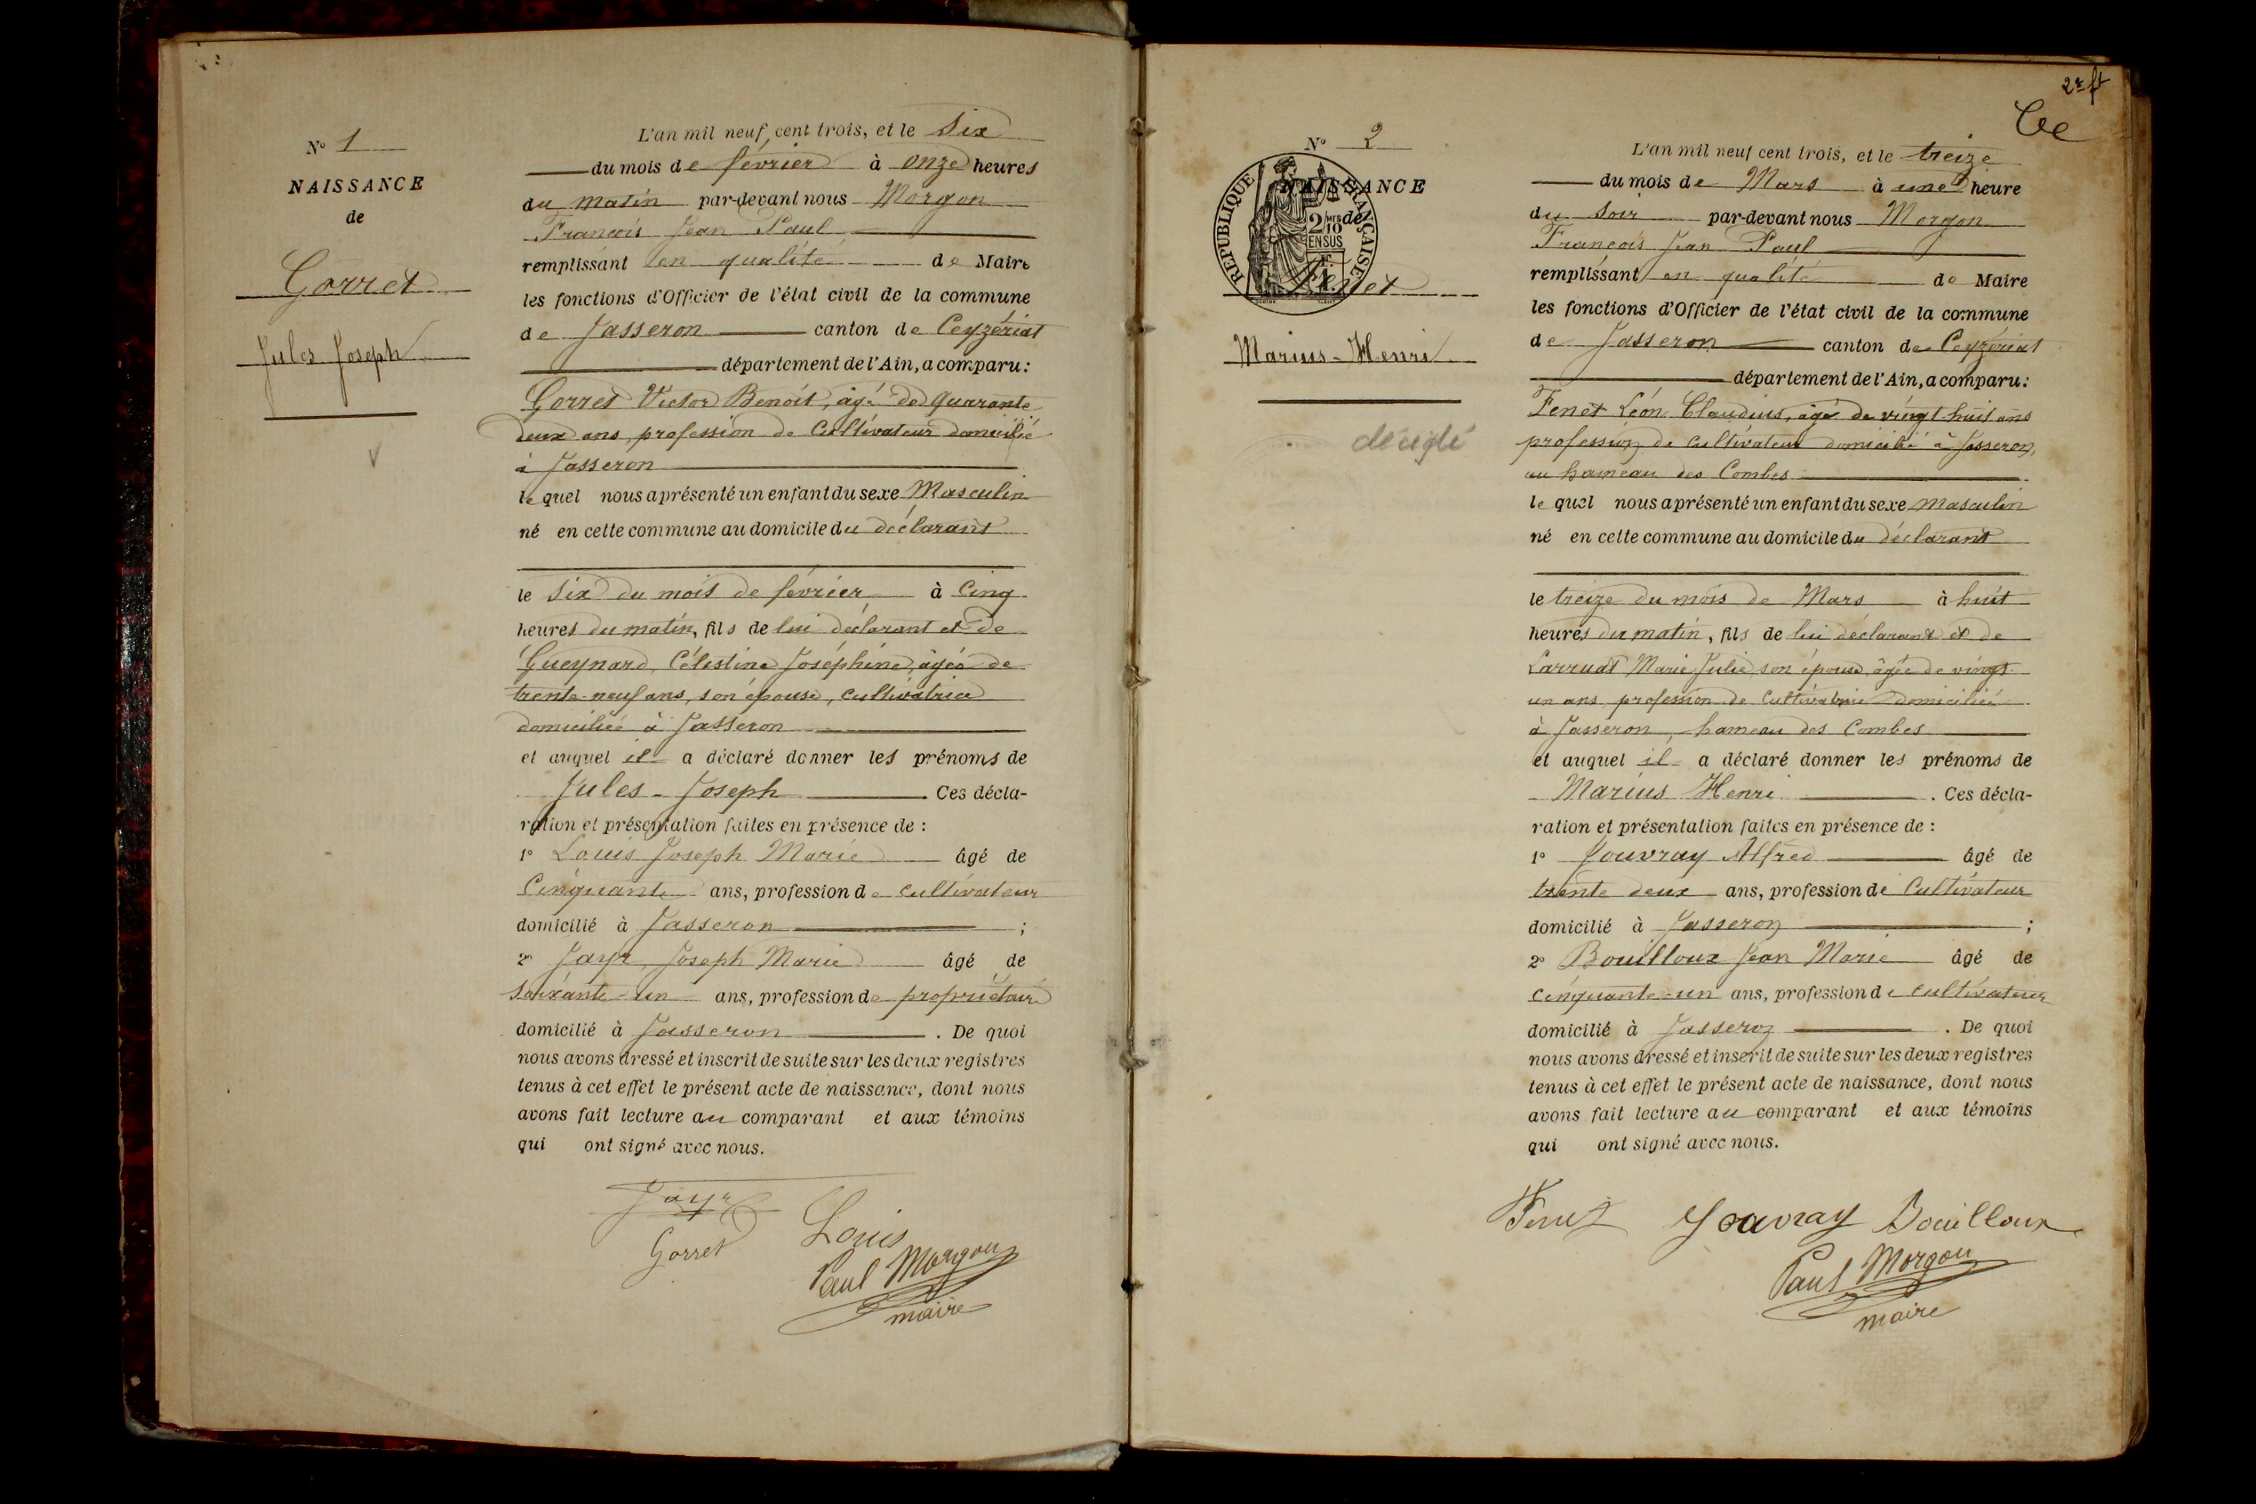 N° 1
NAISSANCE
de
Gorret
Jules Joseph
L'an mil neuf cent trois, et le Six
du mois de février à onze heures
du matin par-devant nous Morgon
François Jean Paul
remplissant en qualité de Maire
les fonctions d'Officier de l'état civil de la commune
de Jasseron canton de Ceyzériat
département de l'Ain, a comparu :
Gorret Victor Benoît, âgé de quarante
deux ans, profession de Cultivateur domicilié
à Jasseron
lequel nous a présenté un enfant du sexe Masculin
né en cette commune au domicile du déclarant
le six du mois de février à cinq
heures du matin, fils de lui déclarant et de
Gueynard Célestine Joséphine âgée de
trente-neuf ans, son épouse, cultivatrice
domiciliée à Jasseron
et auquel il a déclaré donner les prénoms de
Jules - Joseph Ces décla-
ration et présentation faites en présence de :
1° Louis Joseph Marie âgé de
Cinquante ans, profession de cultivateur
domicilié à Jasseron ;
2° Jayr Joseph Marie âgé de
soixante-un ans, profession de propriétaire
domicilié à Jasseron . De quoi
nous avons dressé et inscrit de suite sur les deux registres
tenus à cet effet le présent acte de naissance, dont nous
avons fait lecture au comparant et aux témoins
qui ont signé avec nous.
Jayr
Louis
Gorret
Paul Morgon
maire
2e ft
N° 2
NAISSANCE
de
REPUBLIQUE FRANÇAISE
2/10 EN SUS
Fenet
Marius-Henri
L'an mil neuf cent trois, et le treize
du mois de Mars à une heure
du soir par-devant nous Morgon
François Jean Paul
remplissant en qualité de Maire
les fonctions d'Officier de l'état civil de la commune
de Jasseron canton de Ceyzériat
département de l'Ain, a comparu :
Fenet Léon Claudius, âgé de vingt huit ans
profession de cultivateur domicilié à Jasseron,
au hameau des Combes
lequel nous a présenté un enfant du sexe masculin
né en cette commune au domicile du déclarant
le treize du mois de Mars à huit
heures du matin, fils de lui déclarant et de
Larruat Marie Julie son épouse âgée de vingt
un ans profession de cultivatrice domiciliée
à Jasseron, hameau des Combes
et auquel il a déclaré donner les prénoms de
Marius Henri . Ces décla-
ration et présentation faites en présence de :
1° Jouvray Alfred âgé de
trente deux ans, profession de Cultivateur
domicilié à Jasseron ;
2° Bouilloux Jean Marie âgé de
cinquante-un ans, profession de cultivateur
domicilié à Jasseron . De quoi
nous avons dressé et inscrit de suite sur les deux registres
tenus à cet effet le présent acte de naissance, dont nous
avons fait lecture au comparant et aux témoins
qui ont signé avec nous.
Fenet Jouvray Bouilloux
Paul Morgon
maire